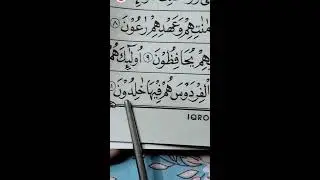 مٰنٰتِهِمْ وَعَهْدِهِمْ رٰعُوْنَ ۙ ٨
يُحَافِظُوْنَ ۘ ٩ اُولٰۤىِٕكَ هُمُ
الْفِرْدَوْسَ هُمْ فِيْهَا خٰلِدُوْنَ
IQRO